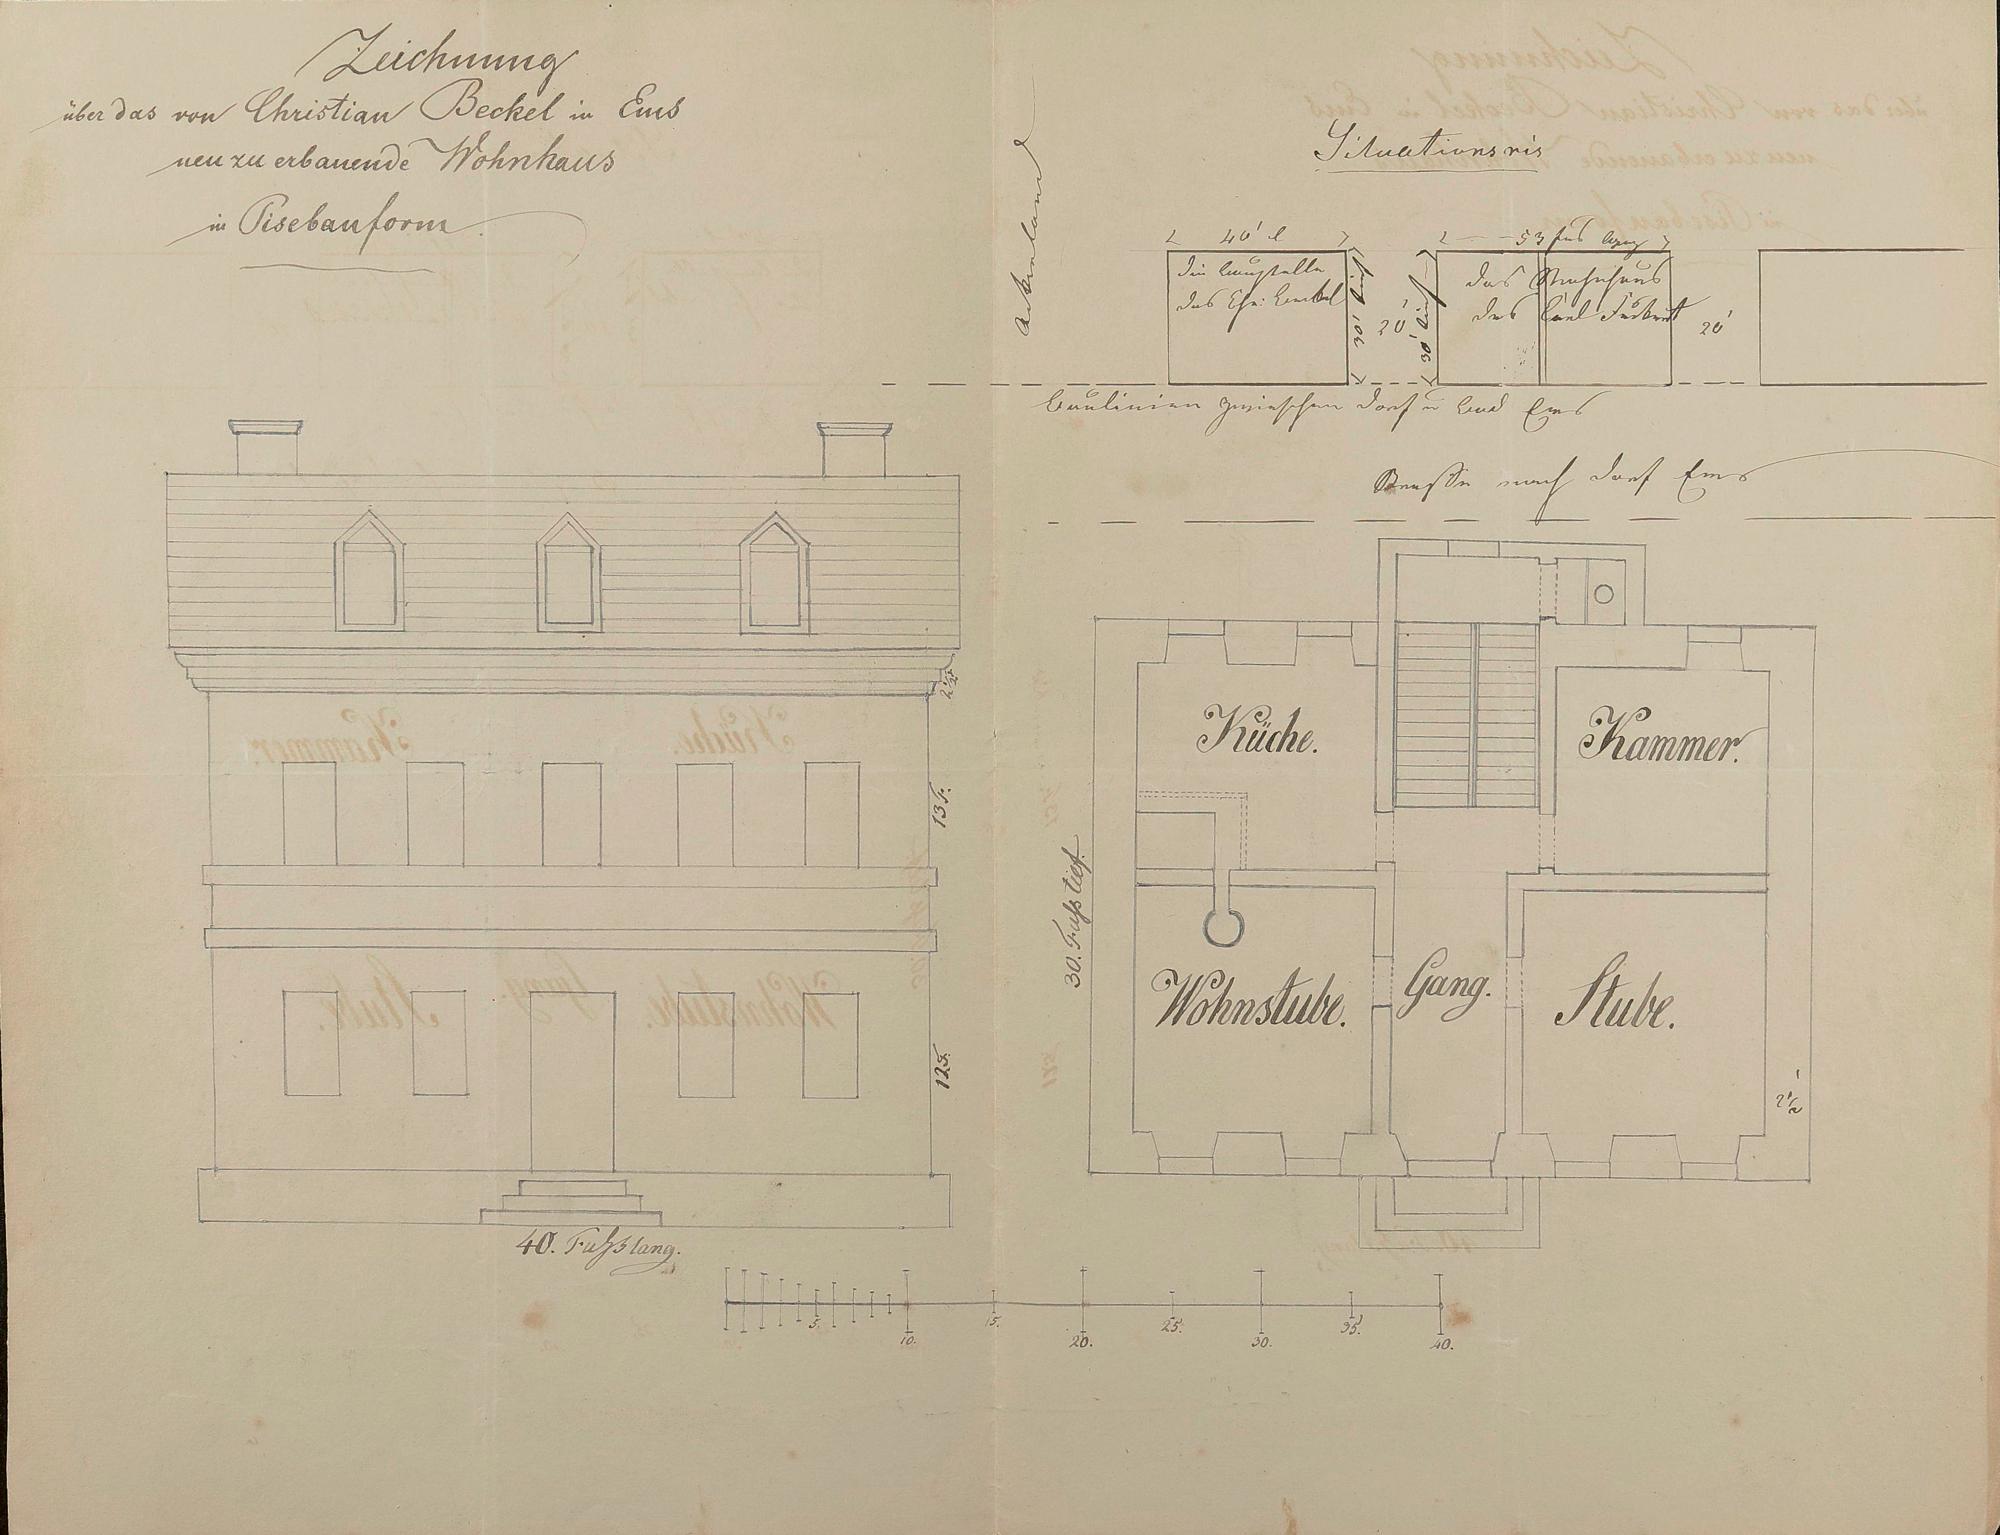 Zeichnung
über das von Christian Beckel in Ems
neu zu erbauende Wohnhaus
in Pisebauform.
Situationsris
Ackerland
40' l
53 fus lang
die Baustelle
des Chr: Beckel
30' tief
20'
30' tief
das Wohnhaus
des Carl
20'
Baulinien zwieschen Dorf u Bad Ems
Strasse nach Dorf Ems
2 1/2'
13 F.
12 F.
40. Fuhs lang.
30. Fuhs tief.
Küche.
Kammer.
Wohnstube.
Gang.
Stube.
2 1/2'
5. 10. 15. 20. 25. 30. 35. 40.